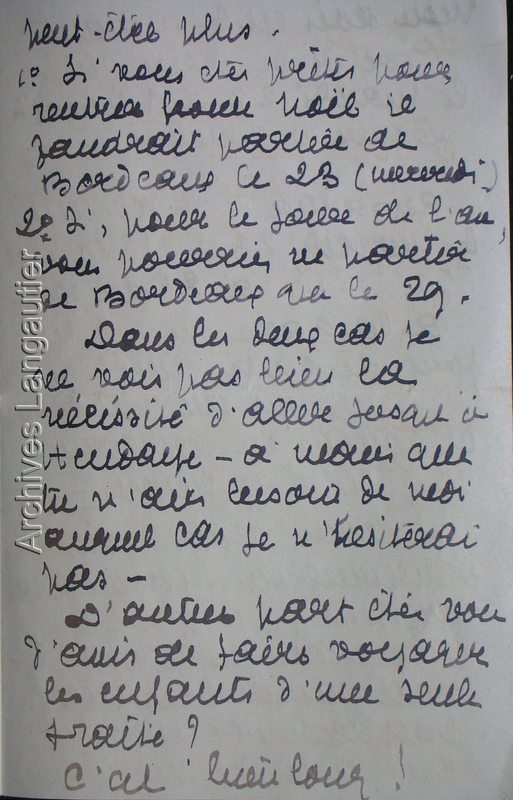 peut-être plus.
1º Si vous êtes prêts pour
rentrer pour Noël il
faudrait partir de
Bordeaux le 23 (mercredi)
2º Si, pour le jour de l'an,
vous pourriez ne partir
de Bordeaux que le 29.
Dans les deux cas je
ne vois pas bien la
nécessité d'aller jusqu'à
Hendaye - à moins que
tu n'aies besoin de moi
auquel cas je n'hésiterai
pas -
D'autre part êtes vous
d'avis de faire voyager
les enfants d'une seule
traite ?
C'est bien long !
Archives Langautier